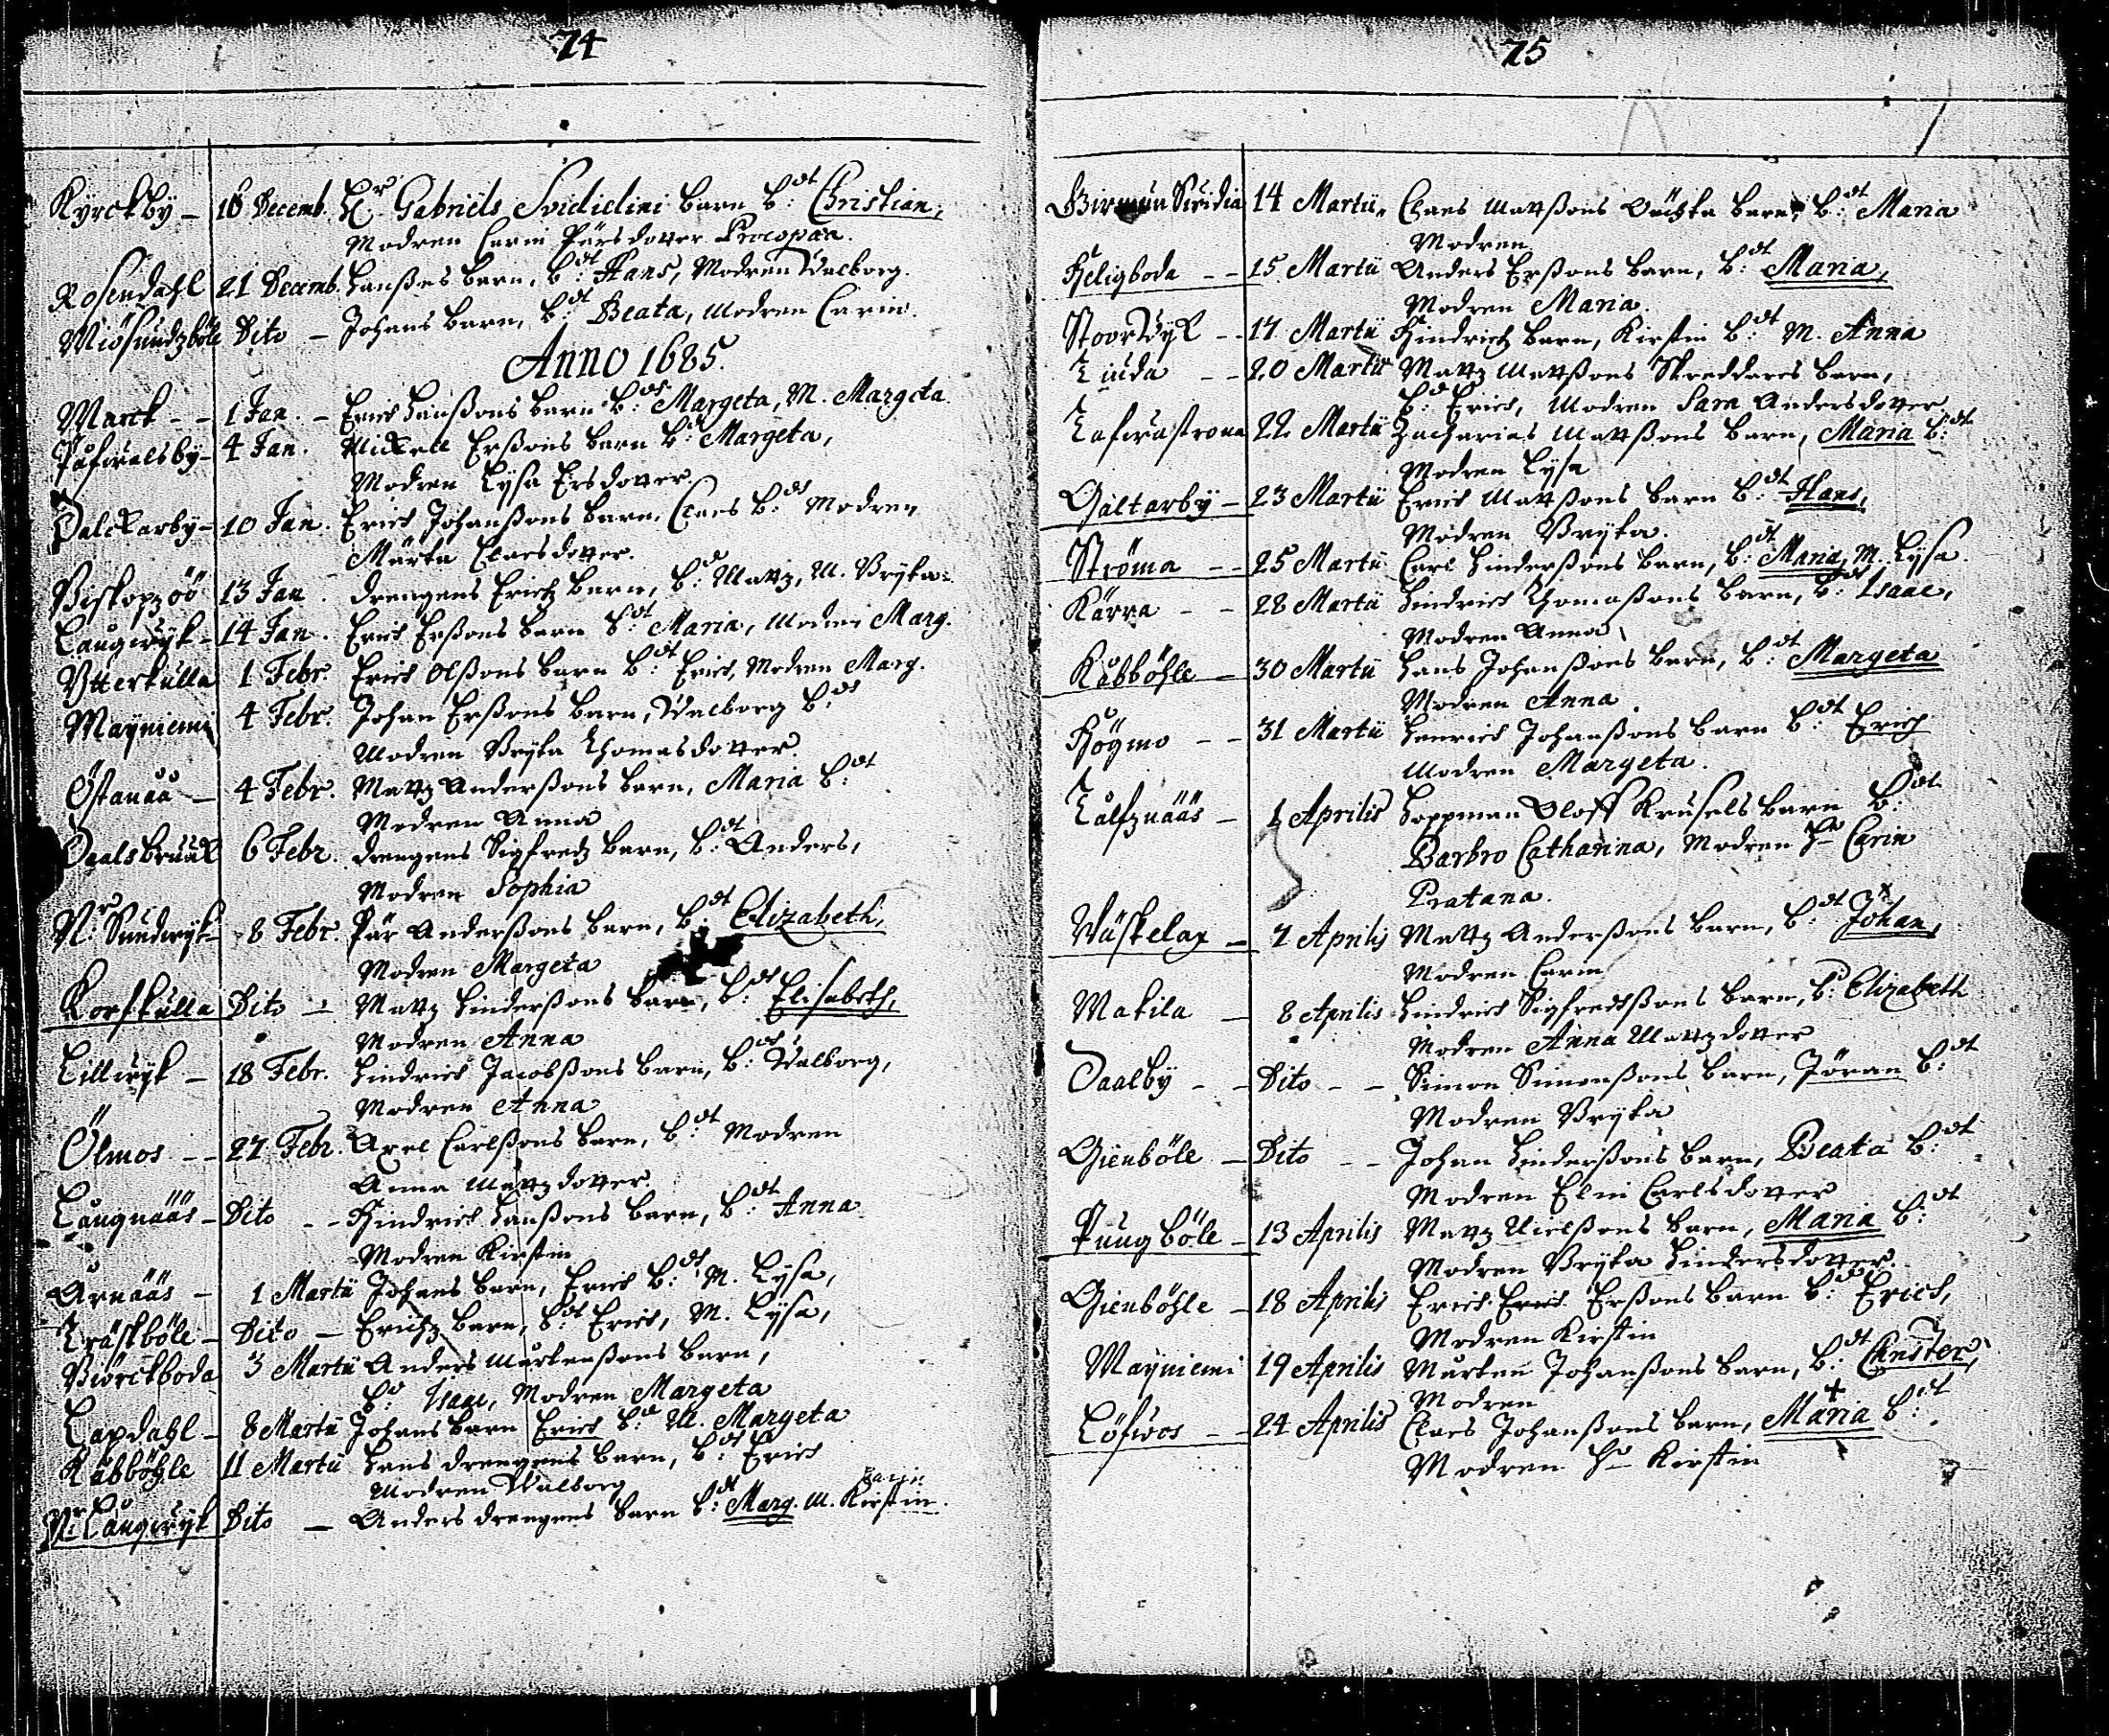 74
Kyrckby – 16 Decemb. H.r Gabriels Svidielini barn b:dt Christian,
Modren Carin Pärsdotter Procopæa.
Rosendahl 21 Decemb. Hanßes barn, b:dt Hans, Modren Walborg.
Miösundzböle Dito – Johans barn, b:dt Beata, Modren Carin.
Anno 1685.
Marck – – 1 Jan. – Erich Hanßons barn b:dt Margeta, M. Margeta
Pafwalsby – 4 Jan. Mickell Erßons barn b:dt Margeta,
Modren Lysa Ersdotter.
Dalckarby – 10 Jan. Erich Johanßons barn, Claes b:dt Modren
Märta Claesdotter.
Biskopzöö 13 Jan. drengens Erichz barn, b:dt Mattz, M. Bryta.
Långwyk – 14 Jan. Erich Erßons barn b:dt Maria, Modren Marg.
Ytterkulla 1 Febr. Erich Olßons barn b:dt Erich, Modren Marg.
Mayniemi 4 Febr. Johan Erßons barn, Walborg b:dt
Modren Bryta Thomasdotter.
Östanåå – 4 Febr. Mattz Anderßons barn, Maria b:dt
Modren Anna
Daalsbruuk 6 Febr. drengens Sigfredz barn, b:dt Anders,
Modren Sophia
N:r Sundwyk – 8 Febr. Pär Anderßons barn, b:dt Elizabeth,
Modren Margeta
Korskulla Dito – Mattz Hinderßons barn, b:dt Elisabeth,
Modren Anna
Lillwyk – 18 Febr. Hindrich Jacobßons barn, b:dt Walborg,
Modren Anna
Ölmos – – 27 Febr. Axel Carlßons barn, b:dt Modren
Anna Mattzdotter.
Långnääs – Dito – – Hindrich Hanßons barn, b:dt Anna
Modren Kirstin
Arnääs – 1 Martii Johans barn, Erich b:dt M. Lysa,
Träskböle – Dito – Erichz barn, b:dt Erich, M. Lysa,
Biörckboda 3 Martii Anders Mårtenßons barn,
b:dt Isaac, Modren Margeta
Laxdahl – 8 Martii Johans barn Erich b:dt M. Margeta
Kåbböhle 11 Martii Hans drengens barn, b:dt Erich
Modren Walborg
Carin
N:r Långwyk Dito – Anders drengens barn b:dt Marg. M. Kirstin.
75
14 Martii, Claes Mattßons barn, b:dt Maria
Modren
Heligboda – – 15 Martii Anders Erßons barn, b:dt Maria,
Modren Maria
StoorWyk – – 17 Martii Hindrichz barn, Kirstin b:dt M. Anna
Linda – – 20 Martii Mattz Mattßons Skreddares barn,
b:dt Erich, Modren Sara Andersdotter
22 Martii Zacharias Mattßons barn, Maria b:dt
Modren Lysa
Galtarby – 23 Martii Erich Mattßons barn b:dt Hans,
Modren Bryta.
Ströma – – 25 Martii Carl Hinderßons barn, b:dt Maria, M. Lysa.
Kärra – – 28 Martii Hindrich Thomaßons barn, b:dt Isaac,
Modren Anna
Kåbböhle – 30 Martii Hans Johanßons barn, b:dt Margeta
Modren Anna
Högmo – – 31 Martii Henrich Johanßons barn b:dt Erich
Modren Margeta.
Kalfznääs – 1 Aprilis Oloff Krusels barn b:dt
Barbro Catharina, Modren H:u Carin
Pratana.
Wäskelax – 7 Aprilis Mattz Anderßons barn, b:dt Johan,
Modren Carin
Makila – 8 Aprilis Hindrich Sigfredhßons barn, b:dt Elizabeth
Modren Anna Mattzdotter
Daalby – – Dito – – Simon Simonßons barn, Jöran b:dt
Modren Bryta
Gienböle – Dito – – Johan Hinderßons barn, Beata b:dt
Modren Elin Carlsdotter
Pungböle – 13 Aprilis Mattz Nielßons barn, Maria b:dt
Modren Bryta Hindersdotter.
Gienböhle – 18 Aprilis Erich Erich Erßons barn b:dt Erich,
Modren Kirstin
Mayniemi 19 Aprilis Mårten Johanßons barn, b:dt Christer,
Modren
Löfwos – – 24 Aprilis Claes Johanßons barn, Maria b:dt
Modren H:u Kirstin